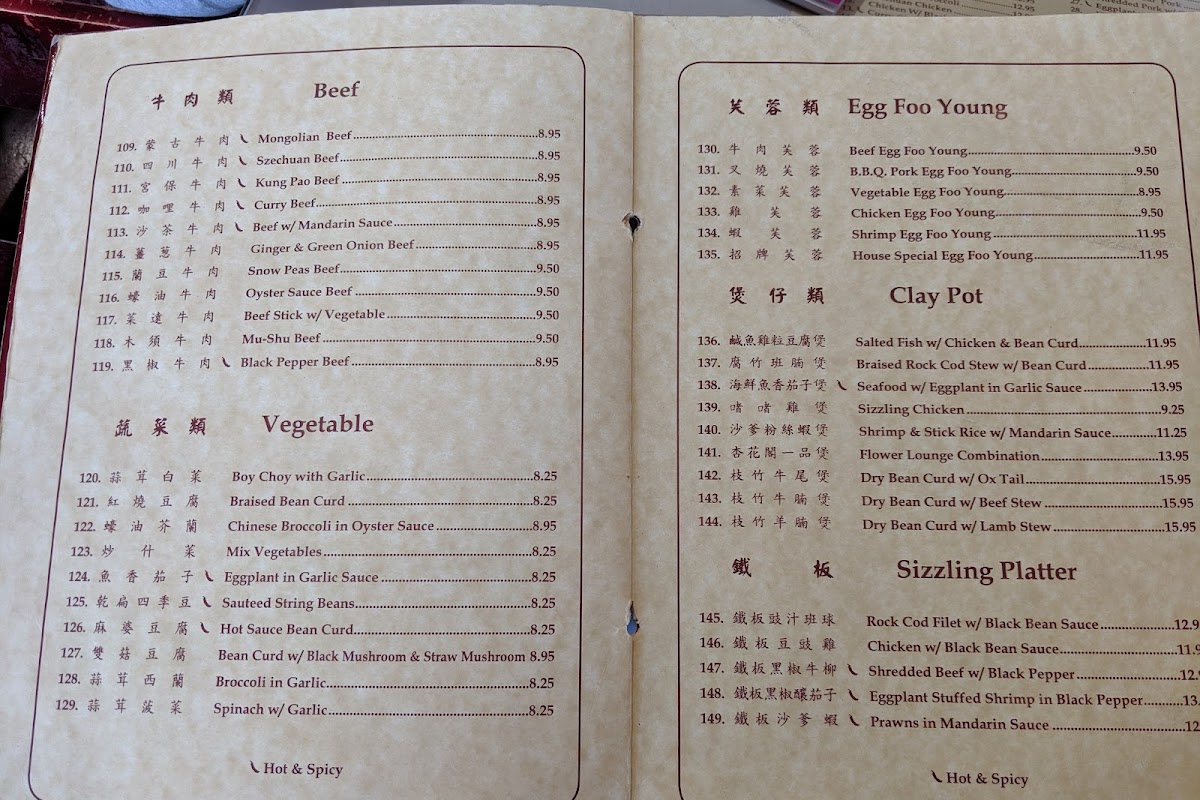 牛肉類 Beef
109. 蒙古牛肉 Mongolian Beef 8.95
110. 四川牛肉 Szechuan Beef 8.95
111. 宮保牛肉 Kung Pao Beef 8.95
112. 咖哩牛肉 Curry Beef 8.95
113. 沙茶牛肉 Beef w/ Mandarin Sauce 8.95
114. 薑蔥牛肉 Ginger & Green Onion Beef 8.95
115. 蘭豆牛肉 Snow Peas Beef 9.50
116. 蠔油牛肉 Oyster Sauce Beef 9.50
117. 菜遠牛肉 Beef Stick w/ Vegetable 9.50
118. 木須牛肉 Mu-Shu Beef 9.50
119. 黑椒牛肉 Black Pepper Beef 8.95
蔬菜類 Vegetable
120. 蒜茸白菜 Boy Choy with Garlic 8.25
121. 紅燒豆腐 Braised Bean Curd 8.25
122. 蠔油芥蘭 Chinese Broccoli in Oyster Sauce 8.95
123. 炒什菜 Mix Vegetables 8.25
124. 魚香茄子 Eggplant in Garlic Sauce 8.25
125. 乾扁四季豆 Sauteed String Beans 8.25
126. 麻婆豆腐 Hot Sauce Bean Curd 8.25
127. 雙菇豆腐 Bean Curd w/ Black Mushroom & Straw Mushroom 8.95
128. 蒜茸西蘭 Broccoli in Garlic 8.25
129. 蒜茸菠菜 Spinach w/ Garlic 8.25
Hot & Spicy
芙蓉類 Egg Foo Young
130. 牛肉芙蓉 Beef Egg Foo Young 9.50
131. 叉燒芙蓉 B.B.Q. Pork Egg Foo Young 9.50
132. 素菜芙蓉 Vegetable Egg Foo Young 8.95
133. 雞芙蓉 Chicken Egg Foo Young 9.50
134. 蝦芙蓉 Shrimp Egg Foo Young 11.95
135. 招牌芙蓉 House Special Egg Foo Young 11.95
煲仔類 Clay Pot
136. 鹹魚雞粒豆腐煲 Salted Fish w/ Chicken & Bean Curd 11.95
137. 腐竹班腩煲 Braised Rock Cod Stew w/ Bean Curd 11.95
138. 海鮮魚香茄子煲 Seafood w/ Eggplant in Garlic Sauce 13.95
139. 啫啫雞煲 Sizzling Chicken 9.25
140. 沙爹粉絲蝦煲 Shrimp & Stick Rice w/ Mandarin Sauce 11.25
141. 杏花閣一品煲 Flower Lounge Combination 13.95
142. 枝竹牛尾煲 Dry Bean Curd w/ Ox Tail 15.95
143. 枝竹牛腩煲 Dry Bean Curd w/ Beef Stew 15.95
144. 枝竹羊腩煲 Dry Bean Curd w/ Lamb Stew 15.95
鐵板 Sizzling Platter
145. 鐵板豉汁班球 Rock Cod Filet w/ Black Bean Sauce 12.9
146. 鐵板豆豉雞 Chicken w/ Black Bean Sauce 11.9
147. 鐵板黑椒牛柳 Shredded Beef w/ Black Pepper 12.
148. 鐵板黑椒釀茄子 Eggplant Stuffed Shrimp in Black Pepper 13.
149. 鐵板沙爹蝦 Prawns in Mandarin Sauce 12.
Hot & Spicy